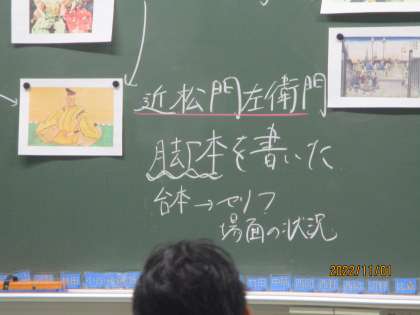 近松門左衛門
脚本を書いた
台本→セリフ
場面の状況
2022/11/01